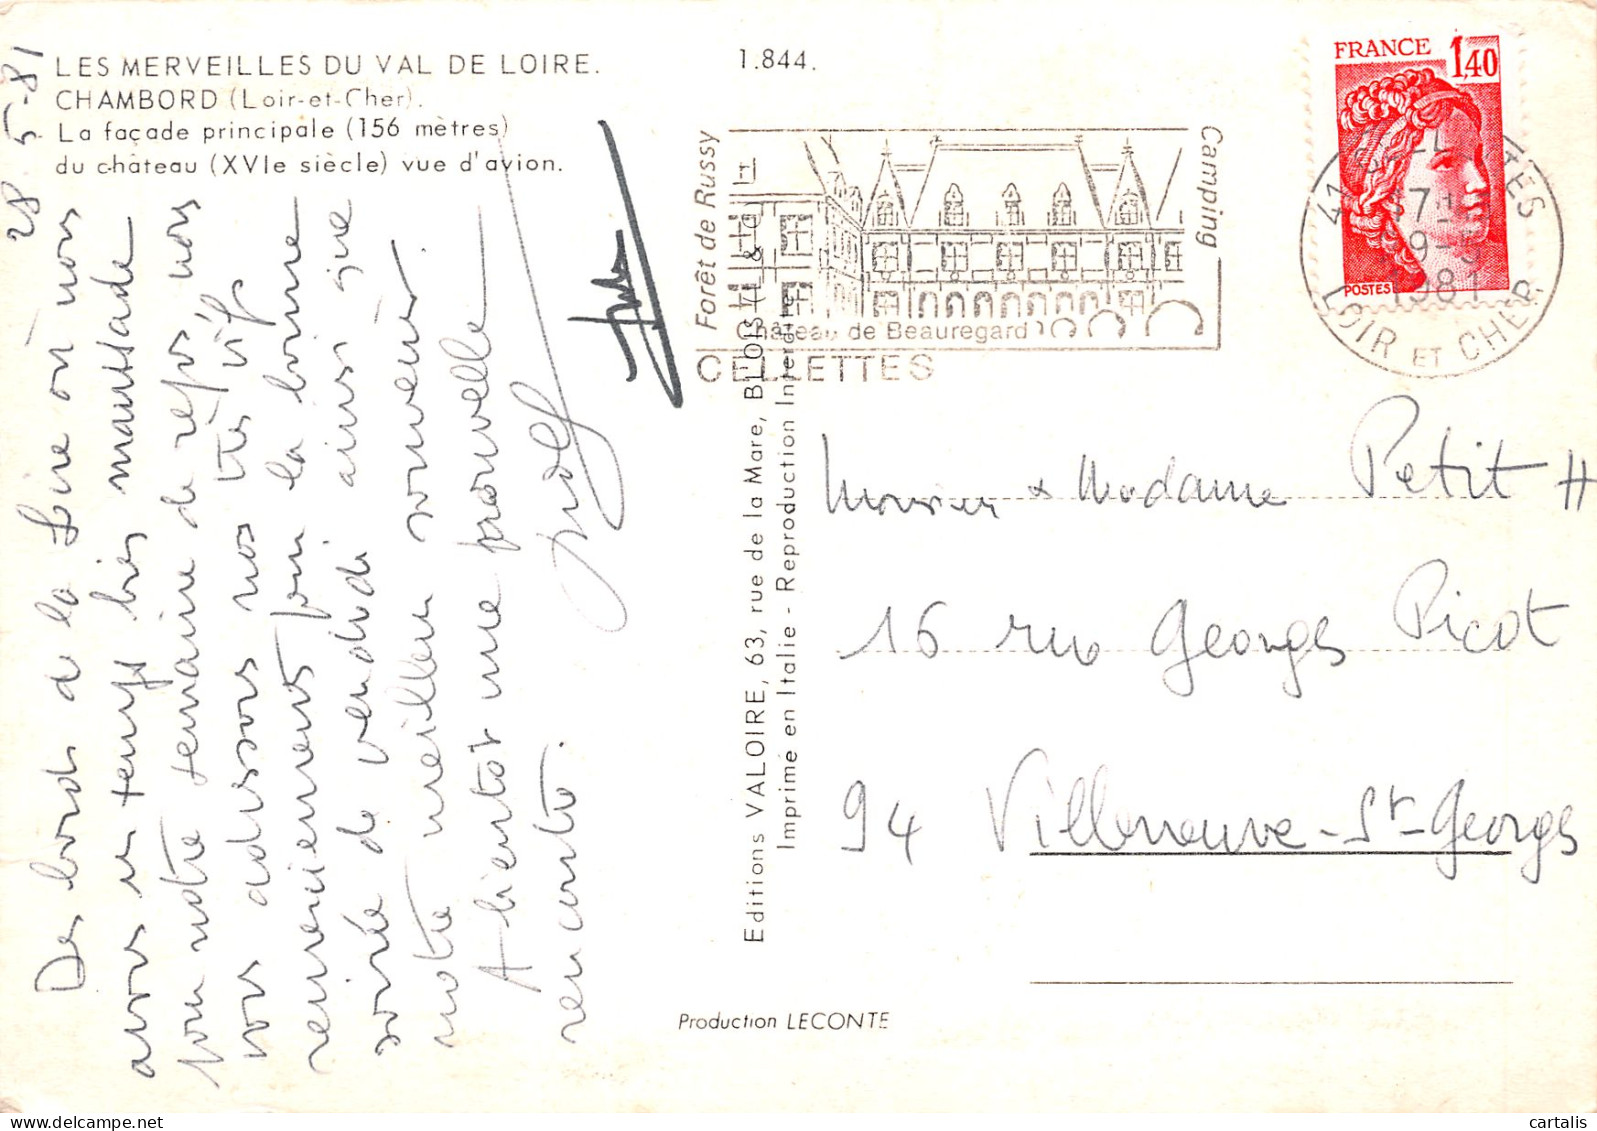 LES MERVEILLES DU VAL DE LOIRE.
CHAMBORD (Loir-et-Cher).
La façade principale (156 mètres)
du château (XVIe siècle) vue d'avion.
1.844.
28-5-81
Des bords de la Loire où nous
avons un temps très maussade
pour notre semaine de repos, nous
vous adressons nos très vifs
remerciements pour la bonne
soirée de vendredi ainsi que
notre meilleur souvenir.
A bientôt une nouvelle
rencontre.
Forêt de Russy
Camping
Château de Beauregard
CELLETTES
FRANCE 1,40
POSTES
41 CELLETTES
17-
1981
LOIR ET CHER
Editions VALOIRE, 63, rue de la Mare, BLOIS (L & C)
Imprimé en Italie - Reproduction Interdite
Monsieur & Madame Petit H
16 rue Georges Picot
94 Villeneuve-St-Georges
Production LECONTE
cartalis